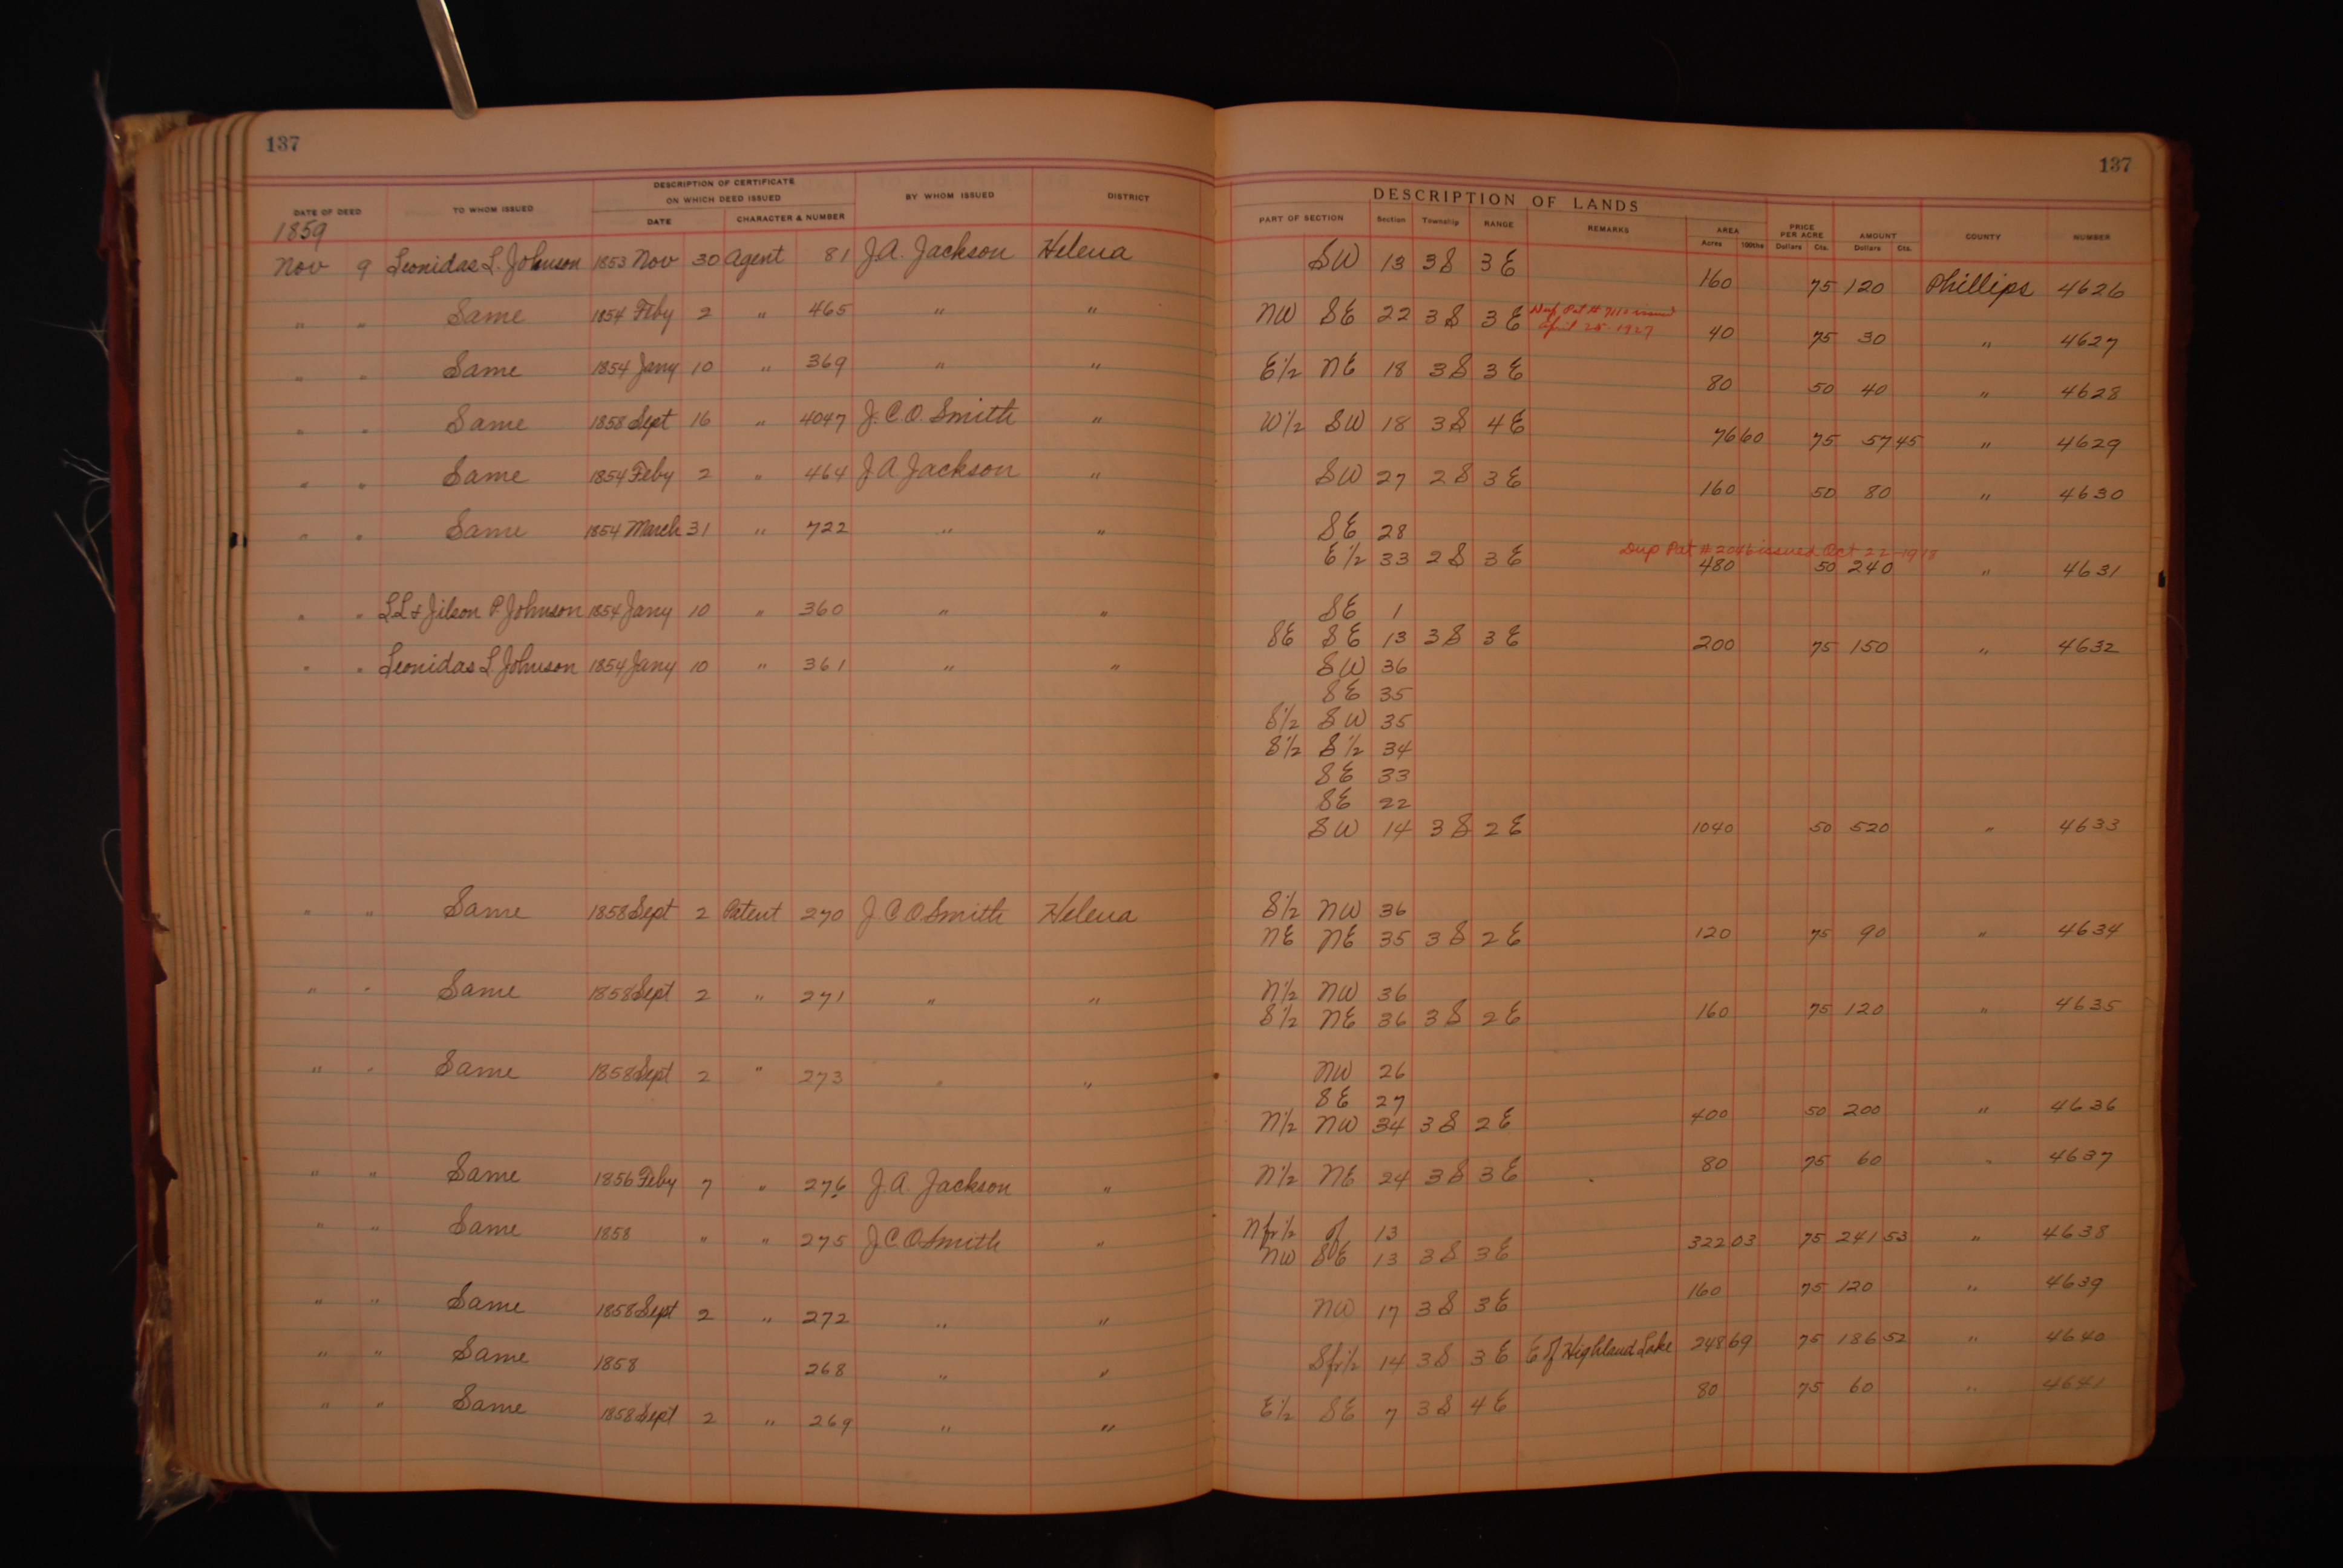 137
137
DESCRIPTION OF CERTIFICATE ON WHICH DEED ISSUED
DESCRIPTION OF LANDS
DATE OF DEED TO WHOM ISSUED DATE CHARACTER & NUMBER BY WHOM ISSUED DISTRICT PART OF SECTION Section Township RANGE REMARKS AREA Acres 100ths PRICE PER ACRE Dollars Cts. AMOUNT Dollars Cts. COUNTY NUMBER
1859
Nov 9 Leonidas L. Johnson 1853 Nov 30 Agent 81 J.A. Jackson Helena SW 13 3S 3E 160 75 120 Phillips 4626
" " Same 1854 Feby 2 " 465 " " NW SE 22 3S 3E Dup Pat # issued April 25-1927 40 75 30 " 4627
" " Same 1854 Jany 10 " 369 " " E½ NE 18 3S 3E 80 50 40 " 4628
" " Same 1858 Sept 16 " 4047 J.C.O. Smith " W½ SW 18 3S 4E 76 60 75 57 45 " 4629
" " Same 1854 Feby 2 " 464 J A Jackson " SW 27 2S 3E 160 50 80 " 4630
" " Same 1854 March 31 " 722 " " SE 28
E½ 33 2S 3E Dup Pat # 2046 issued Oct 22-1918 480 50 240 " 4631
" " L L & Jilson P. Johnson 1854 Jany 10 " 360 " " SE 1
SE SE 13 3S 3E 200 75 150 " 4632
" " Leonidas L. Johnson 1854 Jany 10 " 361 " " SW 36
SE 35
S½ SW 35
S½ S½ 34
SE 33
SE 22
SW 14 3S 2E 1040 50 520 " 4633
" " Same 1858 Sept 2 Patent 270 J C O Smith Helena S½ NW 36
NE NE 35 3S 2E 120 75 90 " 4634
" " Same 1858 Sept 2 " 271 " " N½ NW 36
S½ NE 36 3S 2E 160 75 120 " 4635
" " Same 1858 Sept 2 " 273 " " NW 26
SE 27
N½ NW 34 3S 2E 400 50 200 " 4636
" " Same 1856 Feby 7 " 276 J.A. Jackson " N½ NE 24 3S 3E 80 75 60 " 4637
" " Same 1858 " " 275 J C O Smith " N fr½ of 13
NW SE 13 3S 3E 322 03 75 241 53 " 4638
" " Same 1858 Sept 2 " 272 " " NW 17 3S 3E 160 75 120 " 4639
" " Same 1858 268 " " S fr½ 14 3S 3E E of Highland Lake 248 69 75 186 52 " 4640
" " Same 1858 Sept 2 " 269 " " E½ SE 7 3S 4E 80 75 60 " 4641